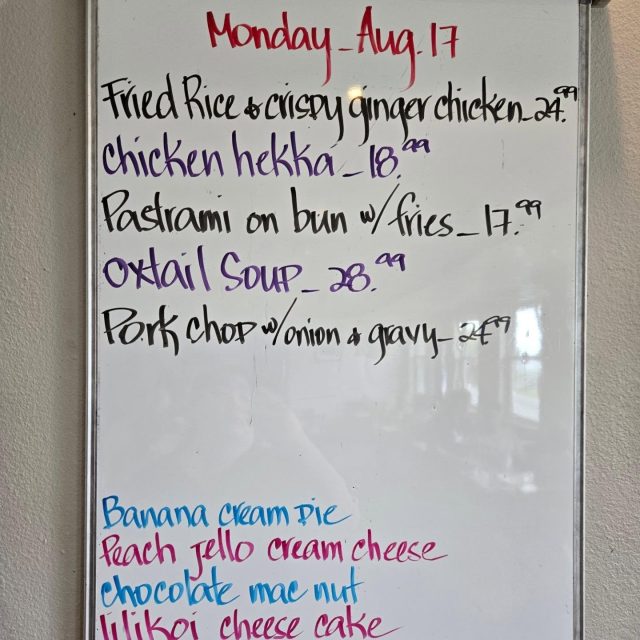 Monday - Aug. 17
Fried Rice & crispy ginger chicken - 24.99
chicken hekka - 18.99
Pastrami on bun w/ fries - 17.99
Oxtail Soup - 28.99
Pork chop w/ onion & gravy - 24.99
Banana cream pie
Peach jello cream cheese
chocolate mac nut
lilikoi cheese cake